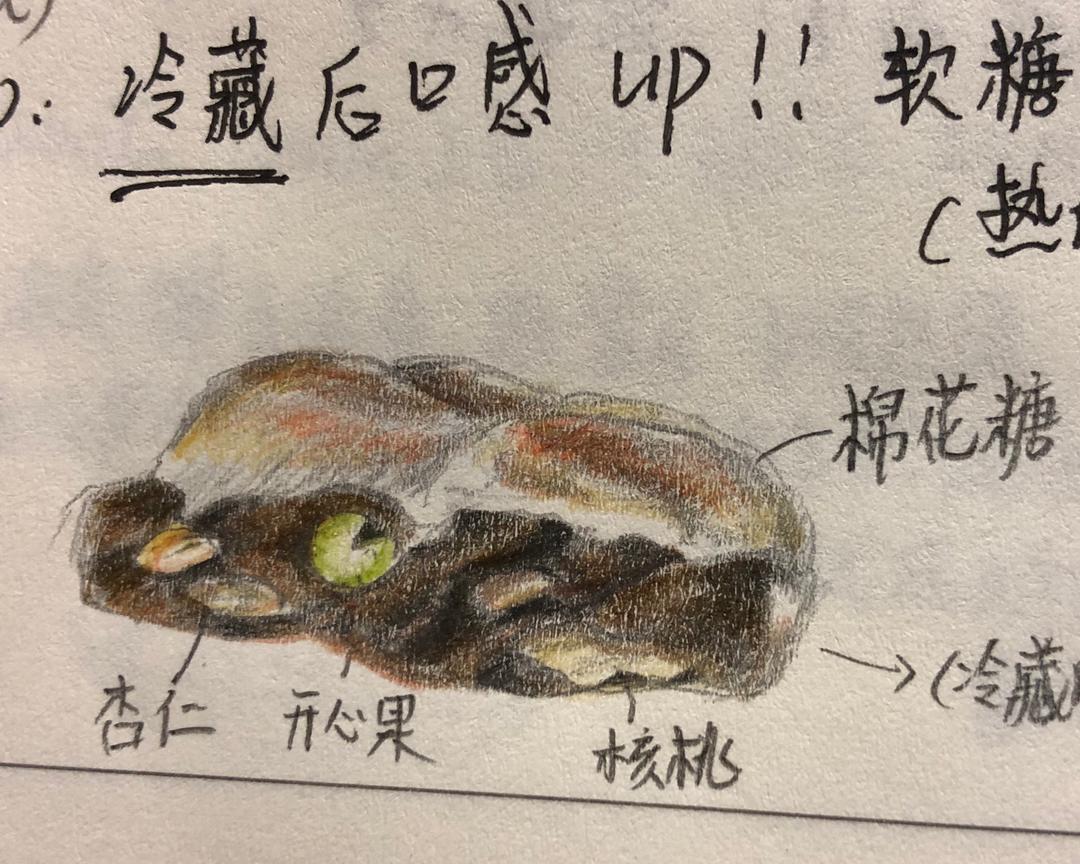 冷藏后口感 up!! 软糖
(热
棉花糖
(冷藏
杏仁 开心果 核桃